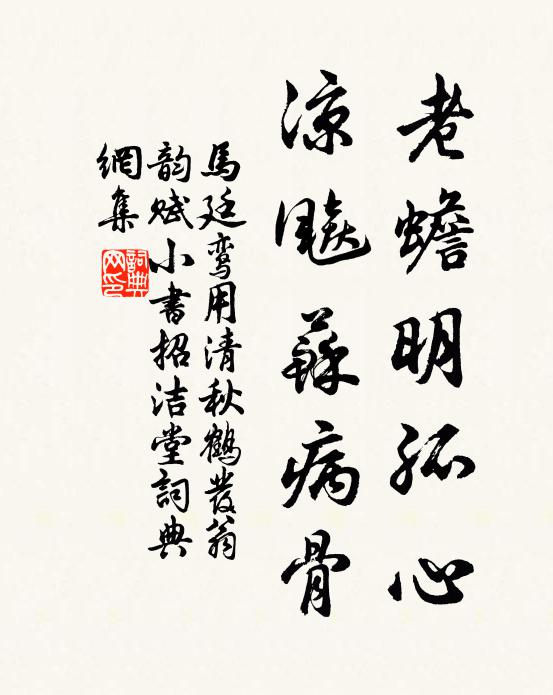 老蟾明孤心
涼飈蘇病骨
馬廷鸾用清秋鶴發翁
韵賦小書招洁堂詞典
網集
詞典
网印